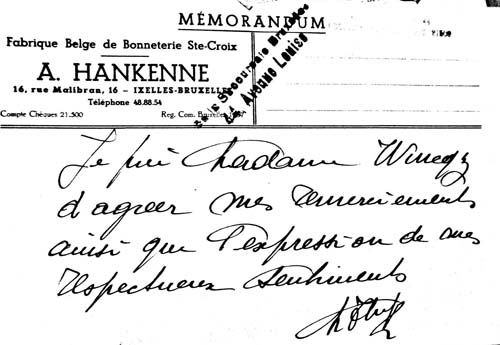 MÉMORANDUM
Fabrique Belge de Bonneterie Ste-Croix
A. HANKENNE
16, rue Malibran, 16 - IXELLES-BRUXELLES
Téléphone 48.88.54
Compte Chèques 21.500 Reg. Com. Bruxelles
Succursale Bruxelles
Avenue Louise
Je prie Madame
d'agreer mes remerciements
ainsi que l'expression de mes
respectueux sentiments